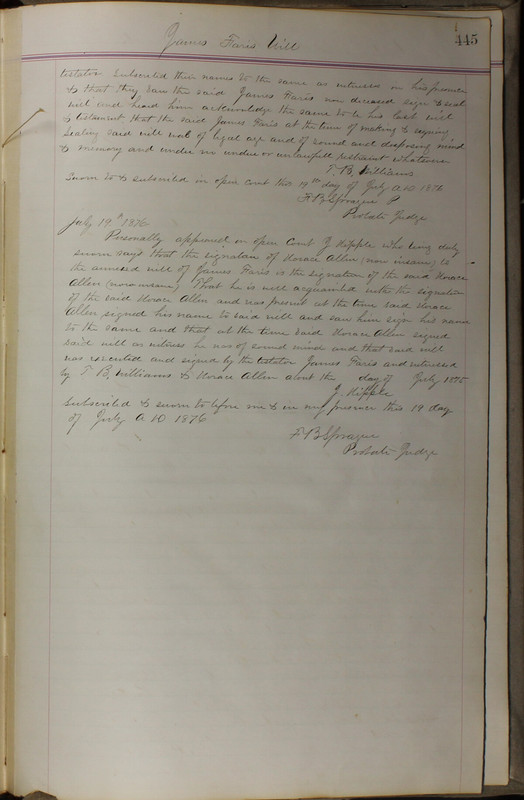 James Faris Will
445
testator Subscribed their names to the same as witnesses in his presence
& that they saw the said James Faris now deceased sign & seal
will and heard him acknowledge the same to be his last will
& testament that the said James Faris at the time of making & signing
Sealing said will was of legal age and of sound and disposing mind
& memory and under no undue or unlawfull restraint whatsoever
T. B. Williams
Sworn to & subscribed in open Court this 19th day of July A.D. 1876
F B Sprague P
Probate Judge
July 19th 1876
Personally appeared in open Court J Hipple who being duly
sworn says that the signature of Horace Allen (now insane) to
the annexed will of James Faris is the signature of the said Horace
Allen (now insane) That he is well acquainted with the signature
of the said Horace Allen and was present at the time said Horace
Allen signed his name to said will and saw him sign his name
to the same and that at the time said Horace Allen signed
said will as witness he was of sound mind and that said will
was executed and signed by the testator James Faris and witnessed
by T B. Williams & Horace Allen about the day of July 1875
J. Hipple
Subscribed & sworn to before me & in my presence this 19 day
of July A D 1876
F B Sprague
Probate Judge